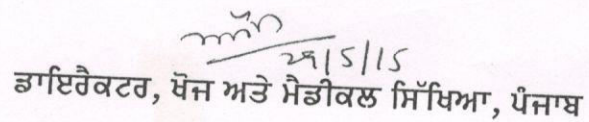 29/5/15
ਡਾਇਰੈਕਟਰ, ਖੋਜ ਅਤੇ ਮੈਡੀਕਲ ਸਿੱਖਿਆ, ਪੰਜਾਬ